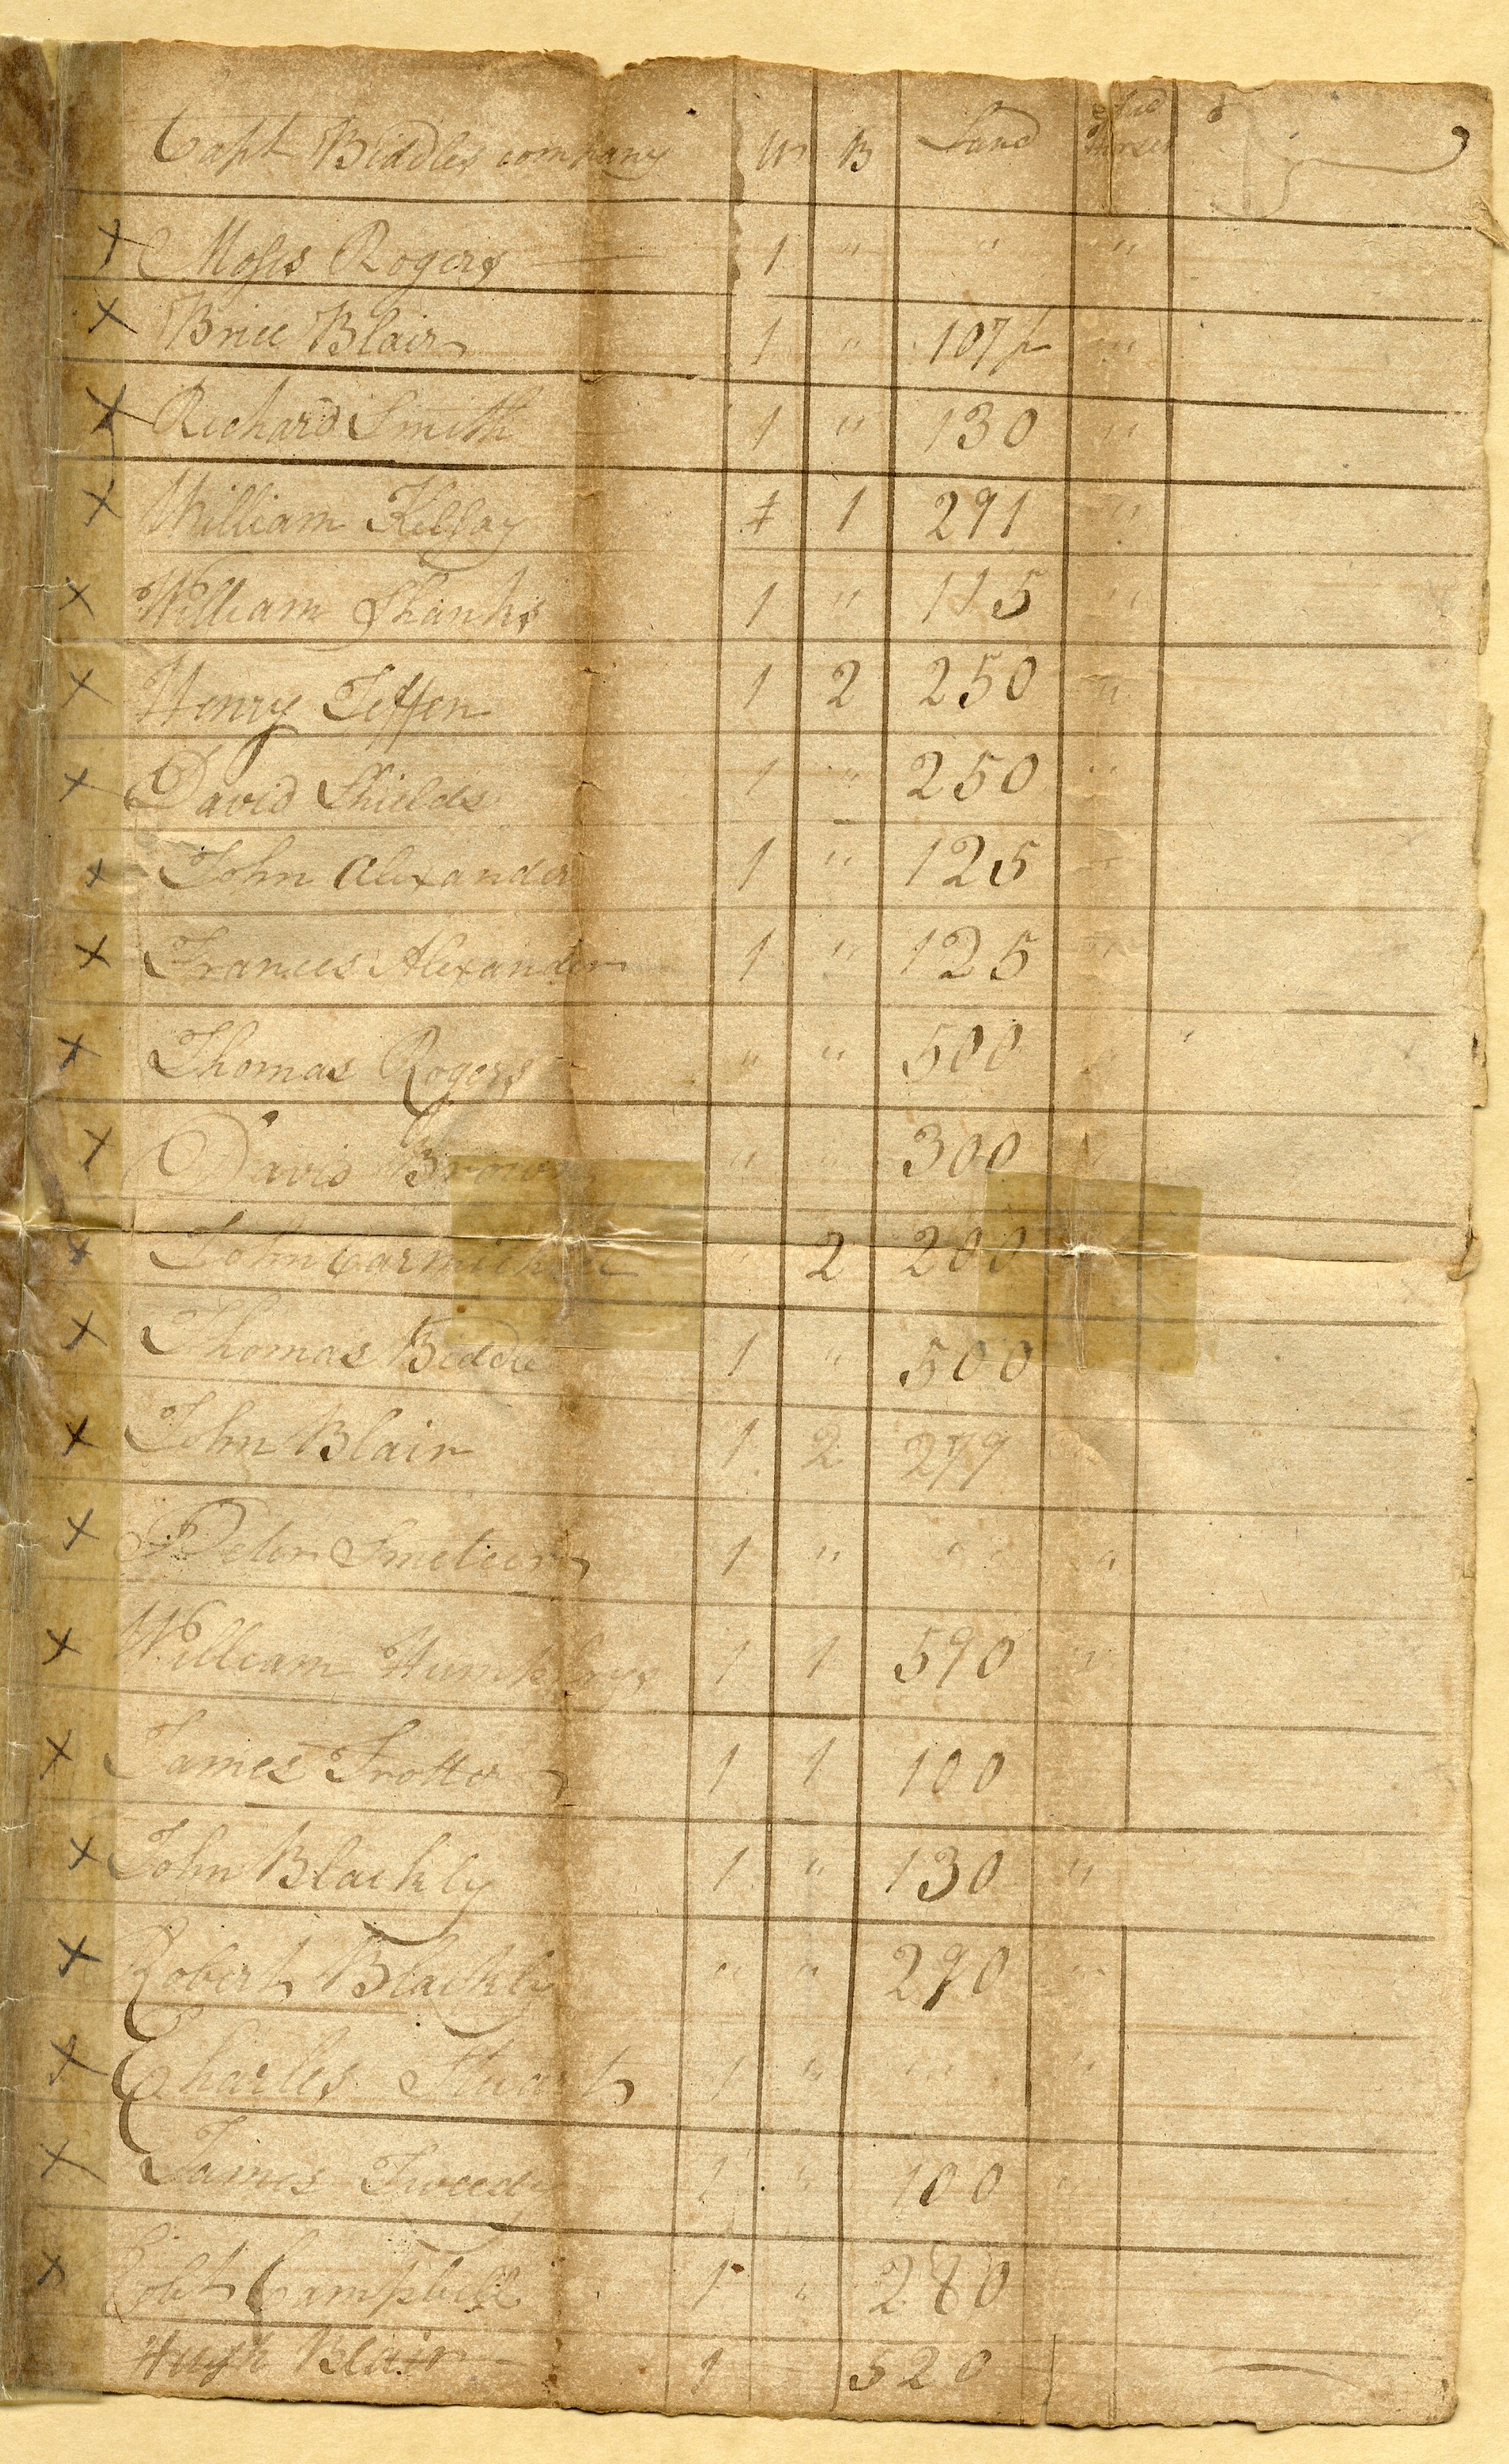 Capt Biddles company W B Land Stud Horses
x Moses Rogers 1 " " "
x Brice Blair 1 " 107½ "
x Richard Smith 1 " 130 "
x William Kelsay 1 291 "
x William Shanks 1 " 115 "
x Henry 1 2 250 "
x David Shields 1 " 250 "
x John Alexander 1 " 125
x Frances Alexander 1 " 125 "
x Thomas Rogers " " 500 "
x David Brown " " 300 "
x John Carmichel " 2 200
x Thomas Biddle 1 " 500
x John Blair 1 2 279
x Peter 1 " " "
x William Humphrys 1 1 590 "
x James Trotter 1 1 100
x John Blackly 1 " 130 "
x Robert Blackly " " 290 "
x Charles Stuart 1 " " "
x James Tweedy 1 " 100 "
x Robt Campbell 1 " 280
Hugh Blair 1 520